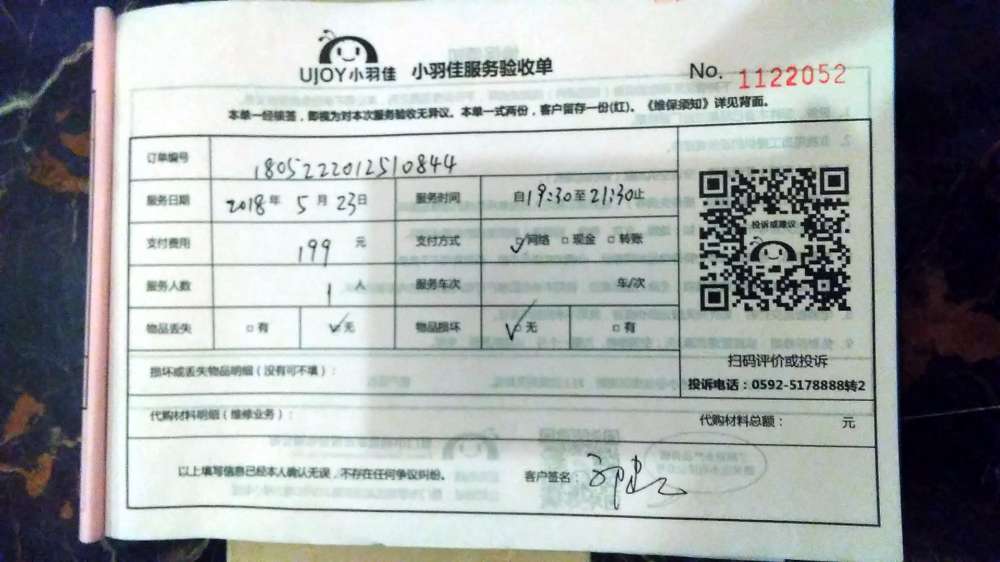 UJOY小羽佳 小羽佳服务验收单 No. 1122052
本单一经核签，即视为对本次服务验收无异议。本单一式两份，客户留存一份(红)。《维保须知》详见背面。
订单编号 1805222012510844
服务日期 2018年 5月 23日 服务时间 自19:30至21:30止
支付费用 199 元 支付方式 ☑网络 □现金 □转账
服务人数 1 人 服务车次 车/次
物品丢失 □有 ☑无 物品损坏 ☑无 □有
投诉或建议
扫码评价或投诉
投诉电话：0592-5178888转2
损坏或丢失物品明细（没有可不填）：
代购材料明细（维修业务）： 代购材料总额： 元
以上填写信息已经本人确认无误，不存在任何争议纠纷。 客户签名：